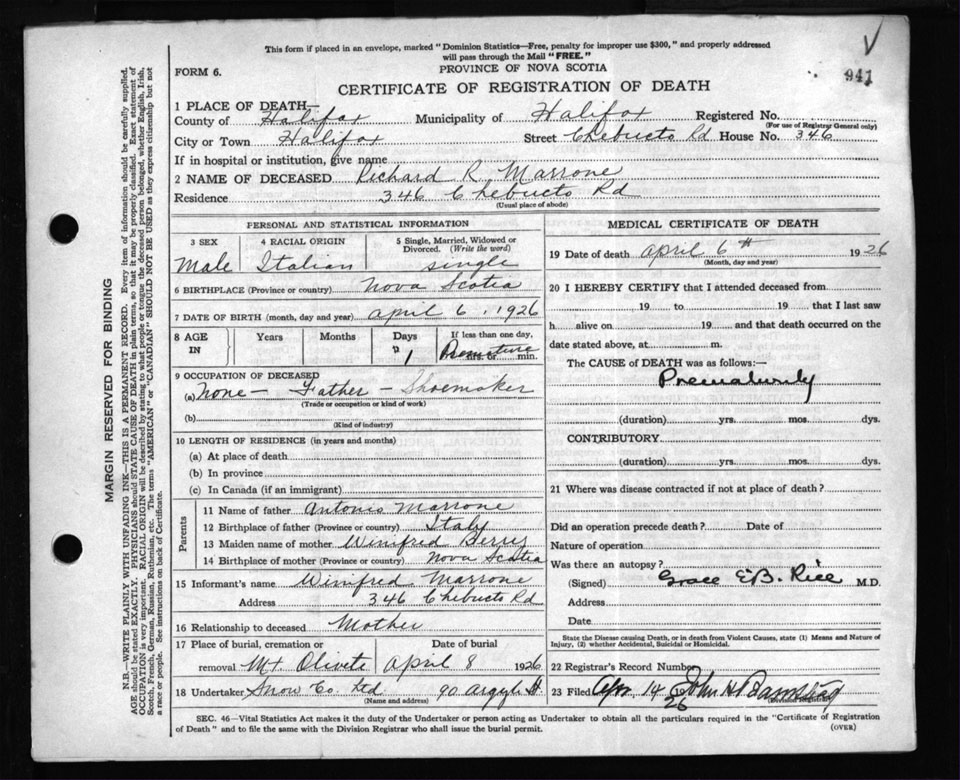 This form if placed in an envelope, marked "Dominion Statistics—Free, penalty for improper use $300," and properly addressed
will pass through the Mail "FREE."
PROVINCE OF NOVA SCOTIA
941
FORM 6.
CERTIFICATE OF REGISTRATION OF DEATH
1 PLACE OF DEATH—
County of Halifax Municipality of Halifax Registered No.
(For use of Registrar General only)
City or Town Halifax Street Chebucto Rd House No. 346
If in hospital or institution, give name
2 NAME OF DECEASED Richard R. Marrone
Residence 346 Chebucto Rd
(Usual place of abode)
PERSONAL AND STATISTICAL INFORMATION
3 SEX 4 RACIAL ORIGIN 5 Single, Married, Widowed or
Divorced. (Write the word)
Male Italian single
6 BIRTHPLACE (Province or country) Nova Scotia
7 DATE OF BIRTH (month, day and year) april 6, 1926
8 AGE IN Years Months Days If less than one day,
1 Premature hrs. or min.
9 OCCUPATION OF DECEASED
(a) None — Father — Shoemaker
(Trade or occupation or kind of work)
(b)
(Kind of industry)
10 LENGTH OF RESIDENCE (in years and months)
(a) At place of death
(b) In province
(c) In Canada (if an immigrant)
Parents
11 Name of father Antonio Marrone
12 Birthplace of father (Province or country) Italy
13 Maiden name of mother Winifred Berry
14 Birthplace of mother (Province or country) Nova Scotia
15 Informant's name Winifred Marrone
Address 346 Chebucto Rd
16 Relationship to deceased Mother
17 Place of burial, cremation or Date of burial
removal Mt. Olivete April 8 1926
18 Undertaker Snow Co. Ltd 90 Argyle St.
(Name and address)
MEDICAL CERTIFICATE OF DEATH
19 Date of death April 6th 1926
(Month, day and year)
20 I HEREBY CERTIFY that I attended deceased from
19 to 19 that I last saw
h alive on 19 and that death occurred on the
date stated above, at m.
The CAUSE of DEATH was as follows:—
Prematurity
(duration) yrs. mos. dys.
CONTRIBUTORY
(duration) yrs. mos. dys.
21 Where was disease contracted if not at place of death?
Did an operation precede death? Date of
Nature of operation
Was there an autopsy?
(Signed) Grace E.B. Rice M.D.
Address
Date
State the Disease causing Death, or in death from Violent Causes, state (1) Means and Nature of
Injury, (2) whether Accidental, Suicidal or Homicidal.
22 Registrar's Record Number
23 Filed Apr. 14 1926 John H.
(Division Registrar)
SEC. 46—Vital Statistics Act makes it the duty of the Undertaker or person acting as Undertaker to obtain all the particulars required in the "Certificate of Registration
of Death" and to file the same with the Division Registrar who shall issue the burial permit. (OVER)
MARGIN RESERVED FOR BINDING
N.B.—WRITE PLAINLY WITH UNFADING INK—THIS IS A PERMANENT RECORD. Every item of information should be carefully supplied.
AGE should be stated EXACTLY. PHYSICIANS should STATE CAUSE OF DEATH in plain terms, so that it may be properly classified. Exact statement of
OCCUPATION is very important. RACIAL ORIGIN will be described by stating to what people or tongue the deceased person belonged, whether English, Irish,
Scotch, French, German, Russian, Ruthenian, etc. The terms "AMERICAN" or "CANADIAN" SHOULD NOT BE USED as they express citizenship but not
a race or people. See instructions on back of Certificate.